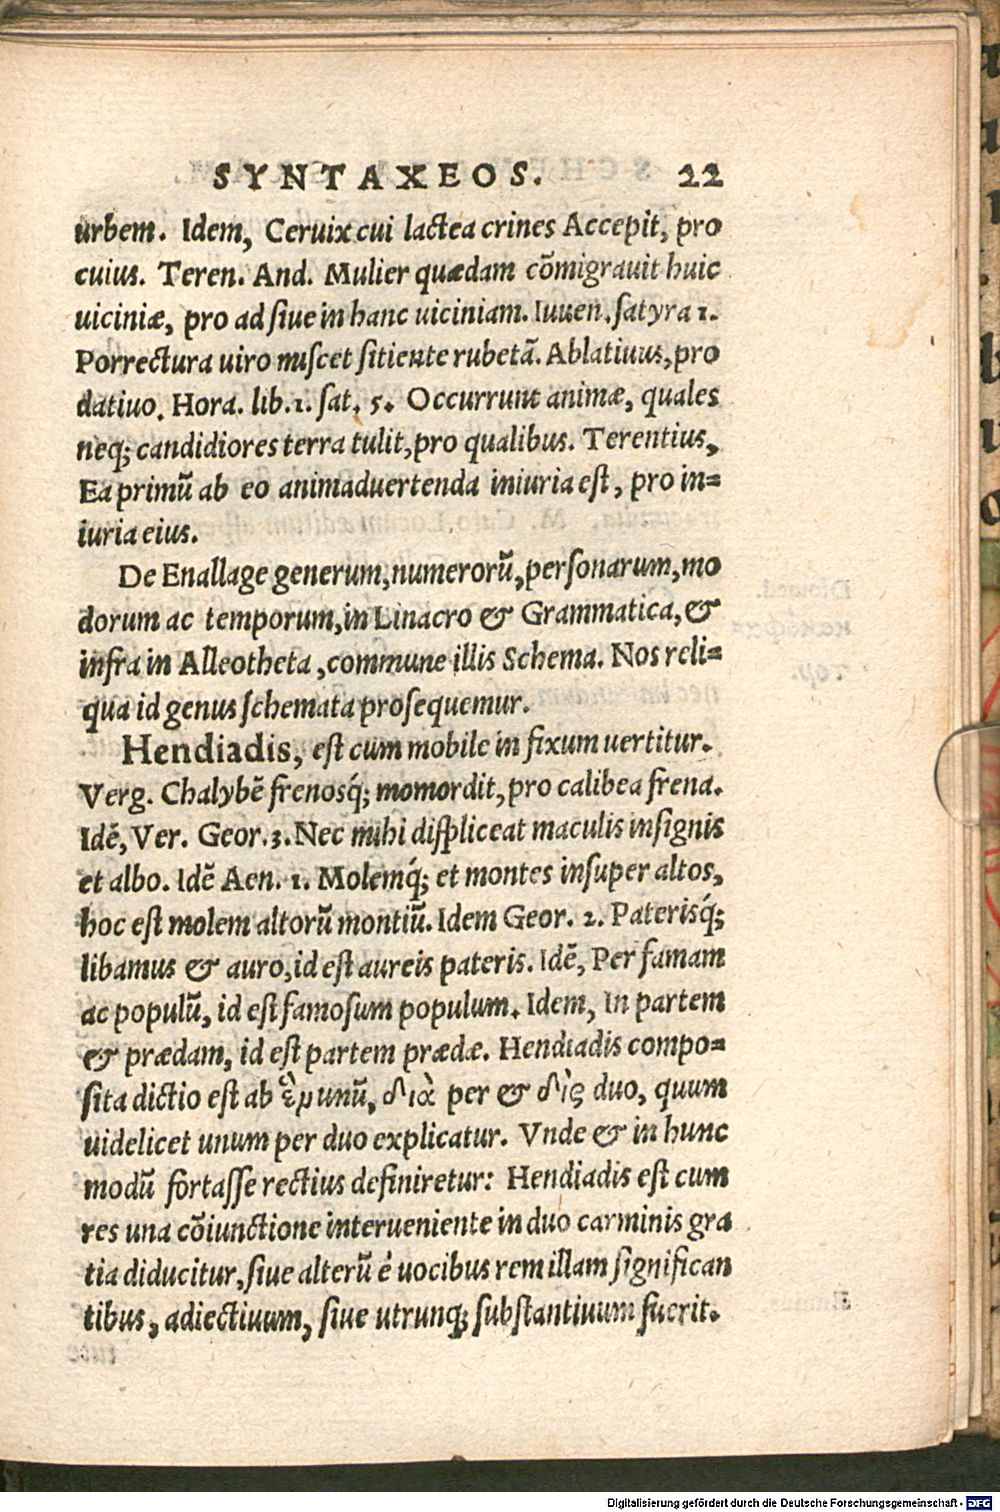 SYNTAXEOS. 22
urbem. Idem, Ceruix cui lactea crines Accepit, pro
cuius. Teren. And. Mulier quædam cõmigrauit huic
uiciniæ, pro ad siue in hanc uiciniam. Iuuen. satyra 1.
Porrectura uiro miscet sitiente rubetã. Ablatiuus, pro
datiuo. Hora. lib. 1. sat. 5. Occurrunt animæ, quales
neq; candidiores terra tulit, pro qualibus. Terentius,
Ea primũ ab eo animaduertenda iniuria est, pro in=
iuria eius.
De Enallage generum, numerorũ, personarum, mo
dorum ac temporum, in Linacro & Grammatica, &
infra in Alleotheta, commune illis Schema. Nos reli=
qua id genus schemata prosequemur.
Hendiadis, est cum mobile in fixum uertitur.
Verg. Chalybẽ frenosq́; momordit, pro calibea frena.
Idẽ, Ver. Geor. 3. Nec mihi displiceat maculis insignis
et albo. Idẽ Aen. 1. Molemq́; et montes insuper altos,
hoc est molem altorũ montiũ. Idem Geor. 2. Paterisq́;
libamus & auro, id est aureis pateris. Idẽ, Per famam
ac populũ, id est famosum populum. Idem, In partem
& prædam, id est partem prædæ. Hendiadis compo=
sita dictio est ab ἓν unũ, διὰ per & δὶς duo, quum
uidelicet unum per duo explicatur. Vnde & in hunc
modũ fortasse rectius definiretur: Hendiadis est cum
res una cõiunctione interueniente in duo carminis gra
tia diducitur, siue alterũ è uocibus rem illam significan
tibus, adiectiuum, siue utrunq; substantiuum fuerit.
Digitalisierung gefördert durch die Deutsche Forschungsgemeinschaft - DFG